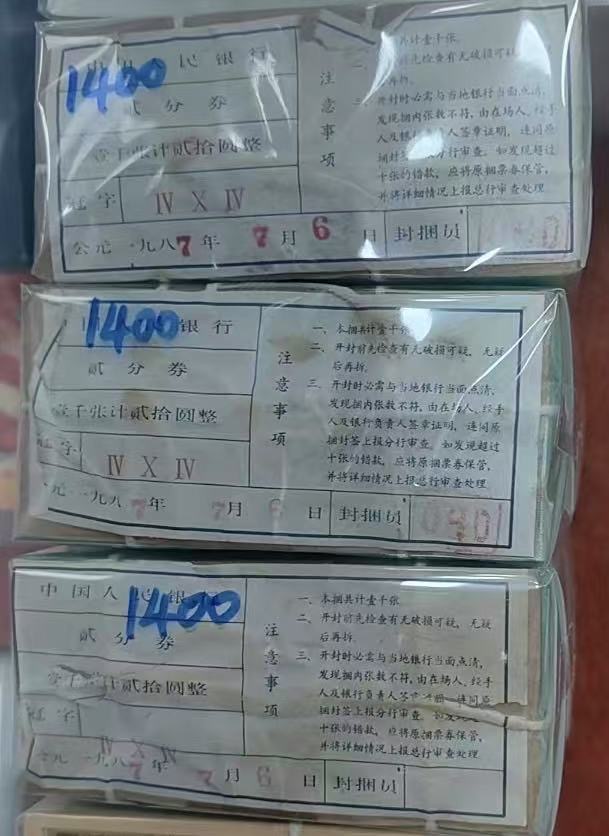 1400
民银行
贰分券
壹千张计贰拾圆整
冠字
Ⅳ Ⅹ Ⅳ
公元一九八7年 7月 6日 封捆员
注意事项
共计壹千张
前先检查有无破损可疑
再拆.
开封时必需与当地银行当面点清,
发现捆内张数不符, 由在场人、经手
人签章证明, 连同原
行审查. 如发现超过
十张的错款, 应将原捆票券保管,
并将详细情况上报总行审查处理
1400
银行
贰分券
壹千张计贰拾圆整
字
Ⅳ Ⅹ Ⅳ
元一九八7年 7月 6日 封捆员
注意事项
一、本捆共计壹千张
二、开封前先检查有无破损可疑, 无疑
后再拆.
三、开封时必需与当地银行当面点清,
发现捆内张数不符, 由在场人、经手
人及银行负责人签章证明, 连同原
捆封签上报分行审查. 如发现超过
十张的错款, 应将原捆票券保管,
并将详细情况上报总行审查处理
中国人民银行
1400
贰分券
壹千张计贰拾圆整
冠字
Ⅳ Ⅹ Ⅳ
公元一九八7年 7月 6日 封捆员
注意事项
一、本捆共计壹千张
二、开封前先检查有无破损可疑, 无疑
后再拆.
三、开封时必需与当地银行当面点清,
发现捆内张数不符, 由在场人、经手
人及银行负责人签章证明, 连同原
捆封签上报分行审查. 如发现超过
十张的错款, 应将原捆票券保管,
并将详细情况上报总行审查处理